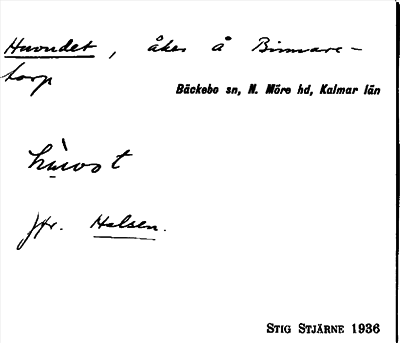 Huvudet, åker å Binnare-
torp
Bäckebo sn, N. Möre hd, Kalmar län
Jfr. Halsen.
STIG STJÄRNE 1936